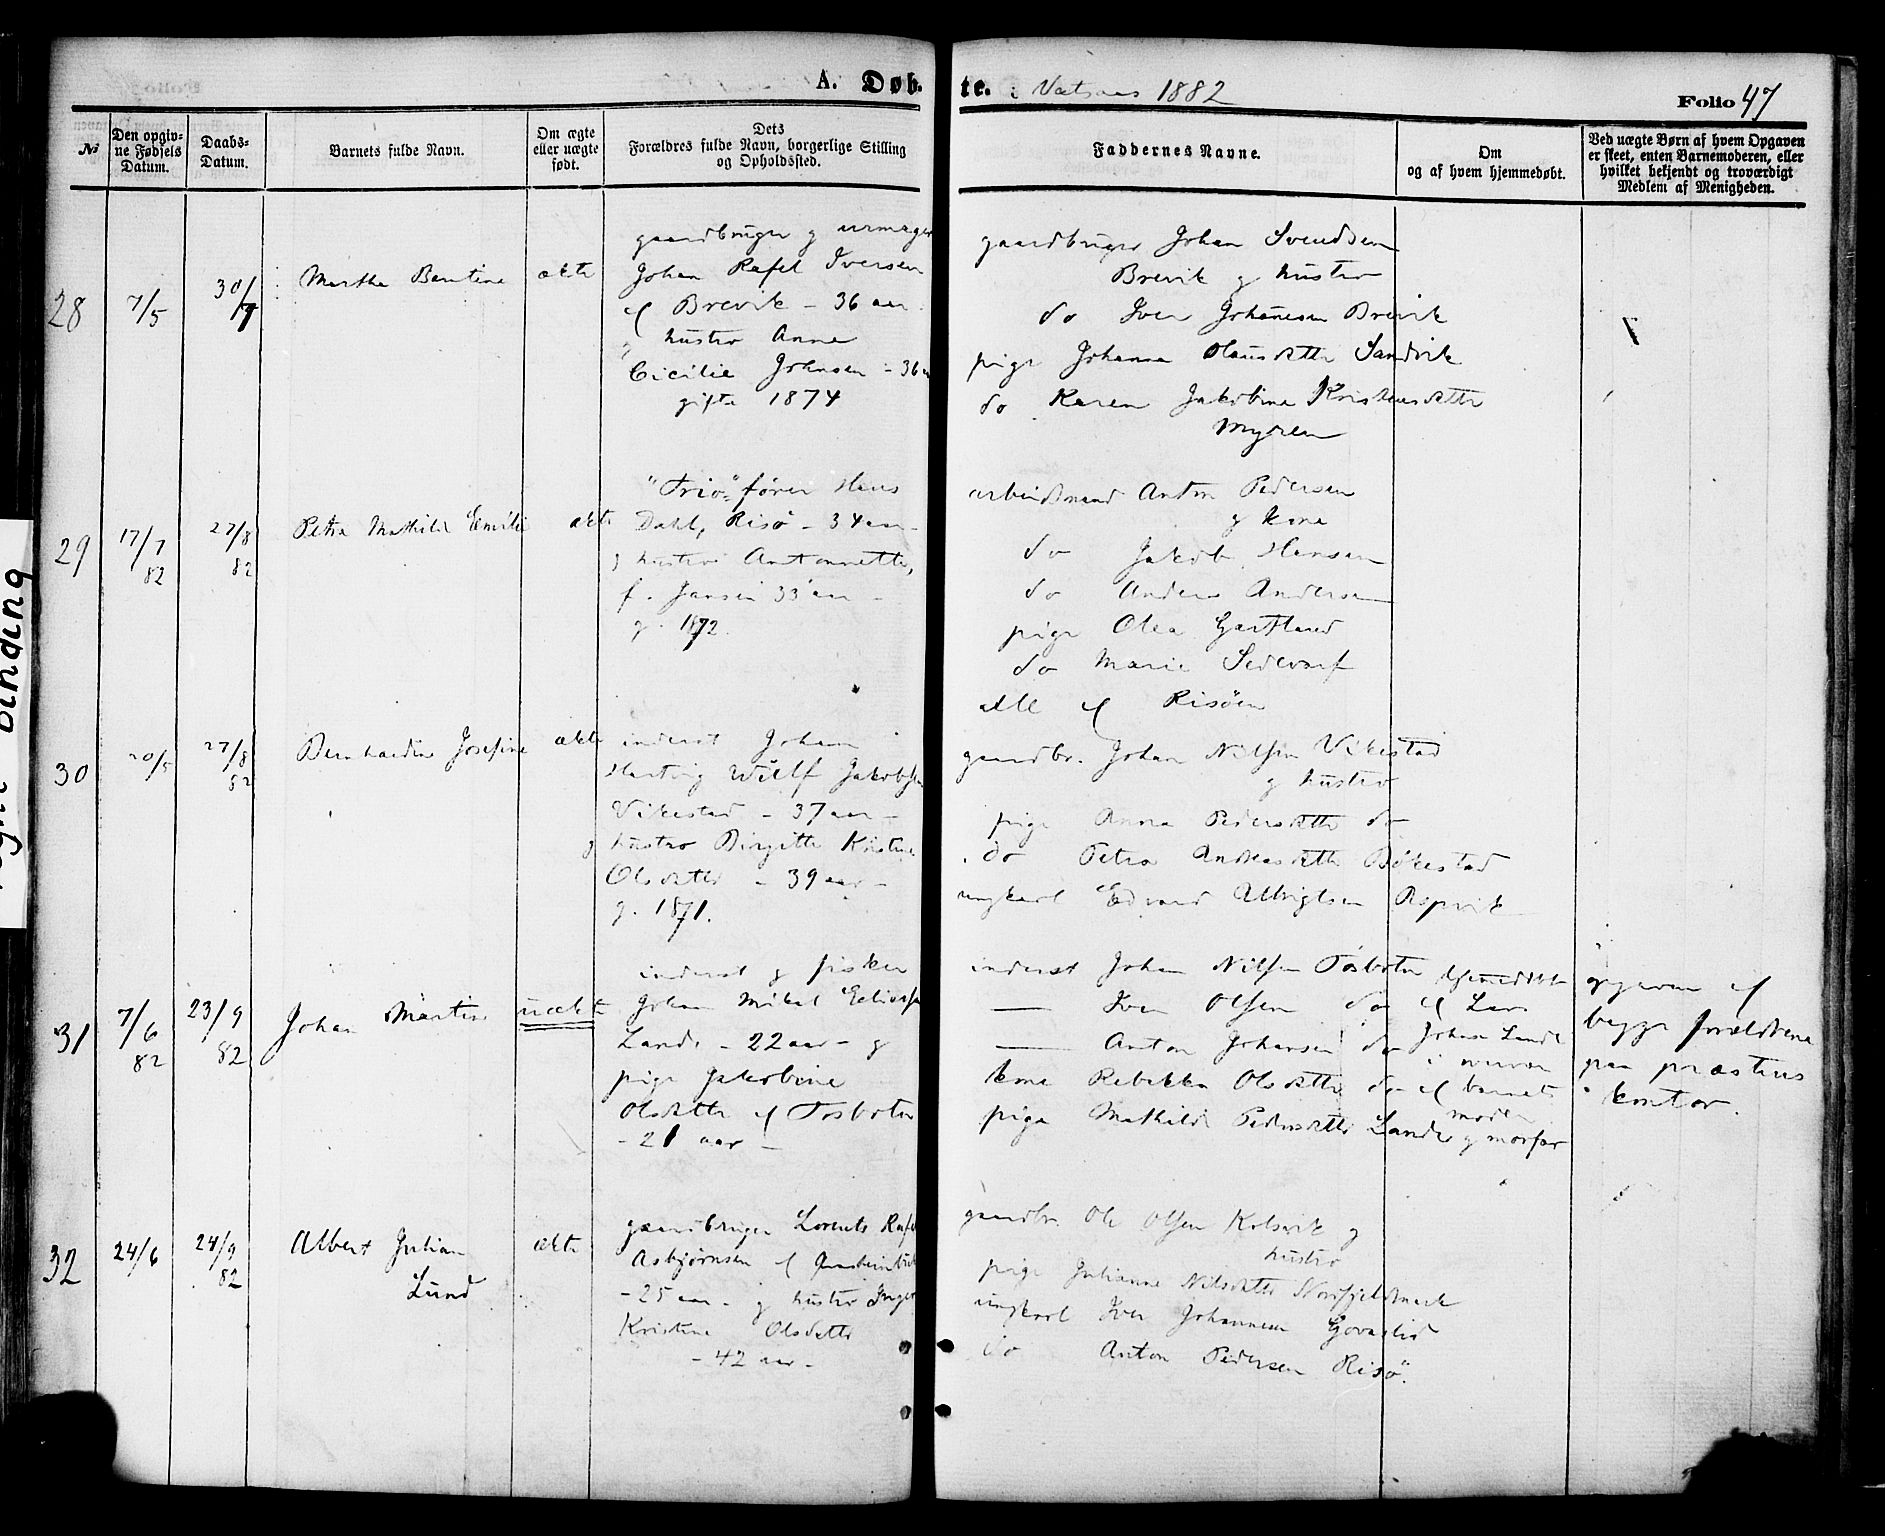 A. Døbte. i Vatsaas 1882
Folio 47
№
Den opgivne Fødsels Datum.
Daabs-Datum.
Barnets fulde Navn.
Om ægte eller uægte født.
Dets Forældres fulde Navn, borgerlige Stilling og Opholdssted.
Faddernes Navne.
Om og af hvem hjemmedøbt.
Ved uægte Børn af hvem Opgaven er skeet, enten Barnemoderen, eller hvilket bekjendt og troværdigt Medlem af Menigheden.
28
7/5
30/7
Martha Bentine
ækte
gaardbruger g urmager
Johan Rafel Iversen
af Brevik – 36 aar
g hustro Anna
Cicilie Johnsen – 36
gifte 1874
gaardbruger Johan Svendsen
Brevik g hustro
do Iver Johansen Brevik
pige Johanna Olausdatter Sandvik
do Karen Jakobine Kristensdatter
Myren
29
17/7
82
27/8
82
Petra Mathilde Emilie
ækte
"Trio"fører Hans
Dahl, Risø – 34 aar –
g hustro Antonette,
f. Jansen 33 aar –
g. 1872.
arbeidsmand Anton Pedersen
g kone
do Jakob Hansen
do Anders Andersen
pige Olea
do Marie
alle af Risøen
30
20/5
27/8
82
Bernhardine Josefine
ækte
inderst Johan
Hartvig Wulf Jakobsen
Vikestad – 37 aar –
g hustro Birgitte Kristine
Olsdatter – 39 aar –
g. 1871.
gaardbr. Johan Nilsen Vikestad
g hustro
pige Anna Pedersdatter do
do Petra Andreasdatter Bøkestad
ungkarl Edvard Ulrigtsen Aspvik
31
7/6
82
23/9
82
Johan Martin
uækte
inderst g fisker
Johan Mikal
Lande – 22 aar – g
pige Jakobine
Olsdatter af Tosbotn
– 21 aar –
inderst Johan Nilsen Tosbotn
— Iver Olsen do
— Anton Johansen do
kone Rebekka Olsdatter do
pige Mathilde Pedersdatter Lande
hjemmedøbt
af Lars
Johan Lande
i nærvær
af barnets
moder
g morfar
opgaven af
begge forældrene
paa præstens
kontor.
32
24/6
24/9
82
Albert Julian
Lund
ækte
gaardbruger Lorents Rafel
Asbjørnsen af
– 25 aar – g hustro Inger
Kristine Olsdatter
– 42 aar –
gaardbr. Ole Olsen Kolsvik g
hustro
pige Julianna Nilsdatter Norfjeldmark
ungkarl Iver Johannesen Govaslid
do Anton Pedersen Risø.